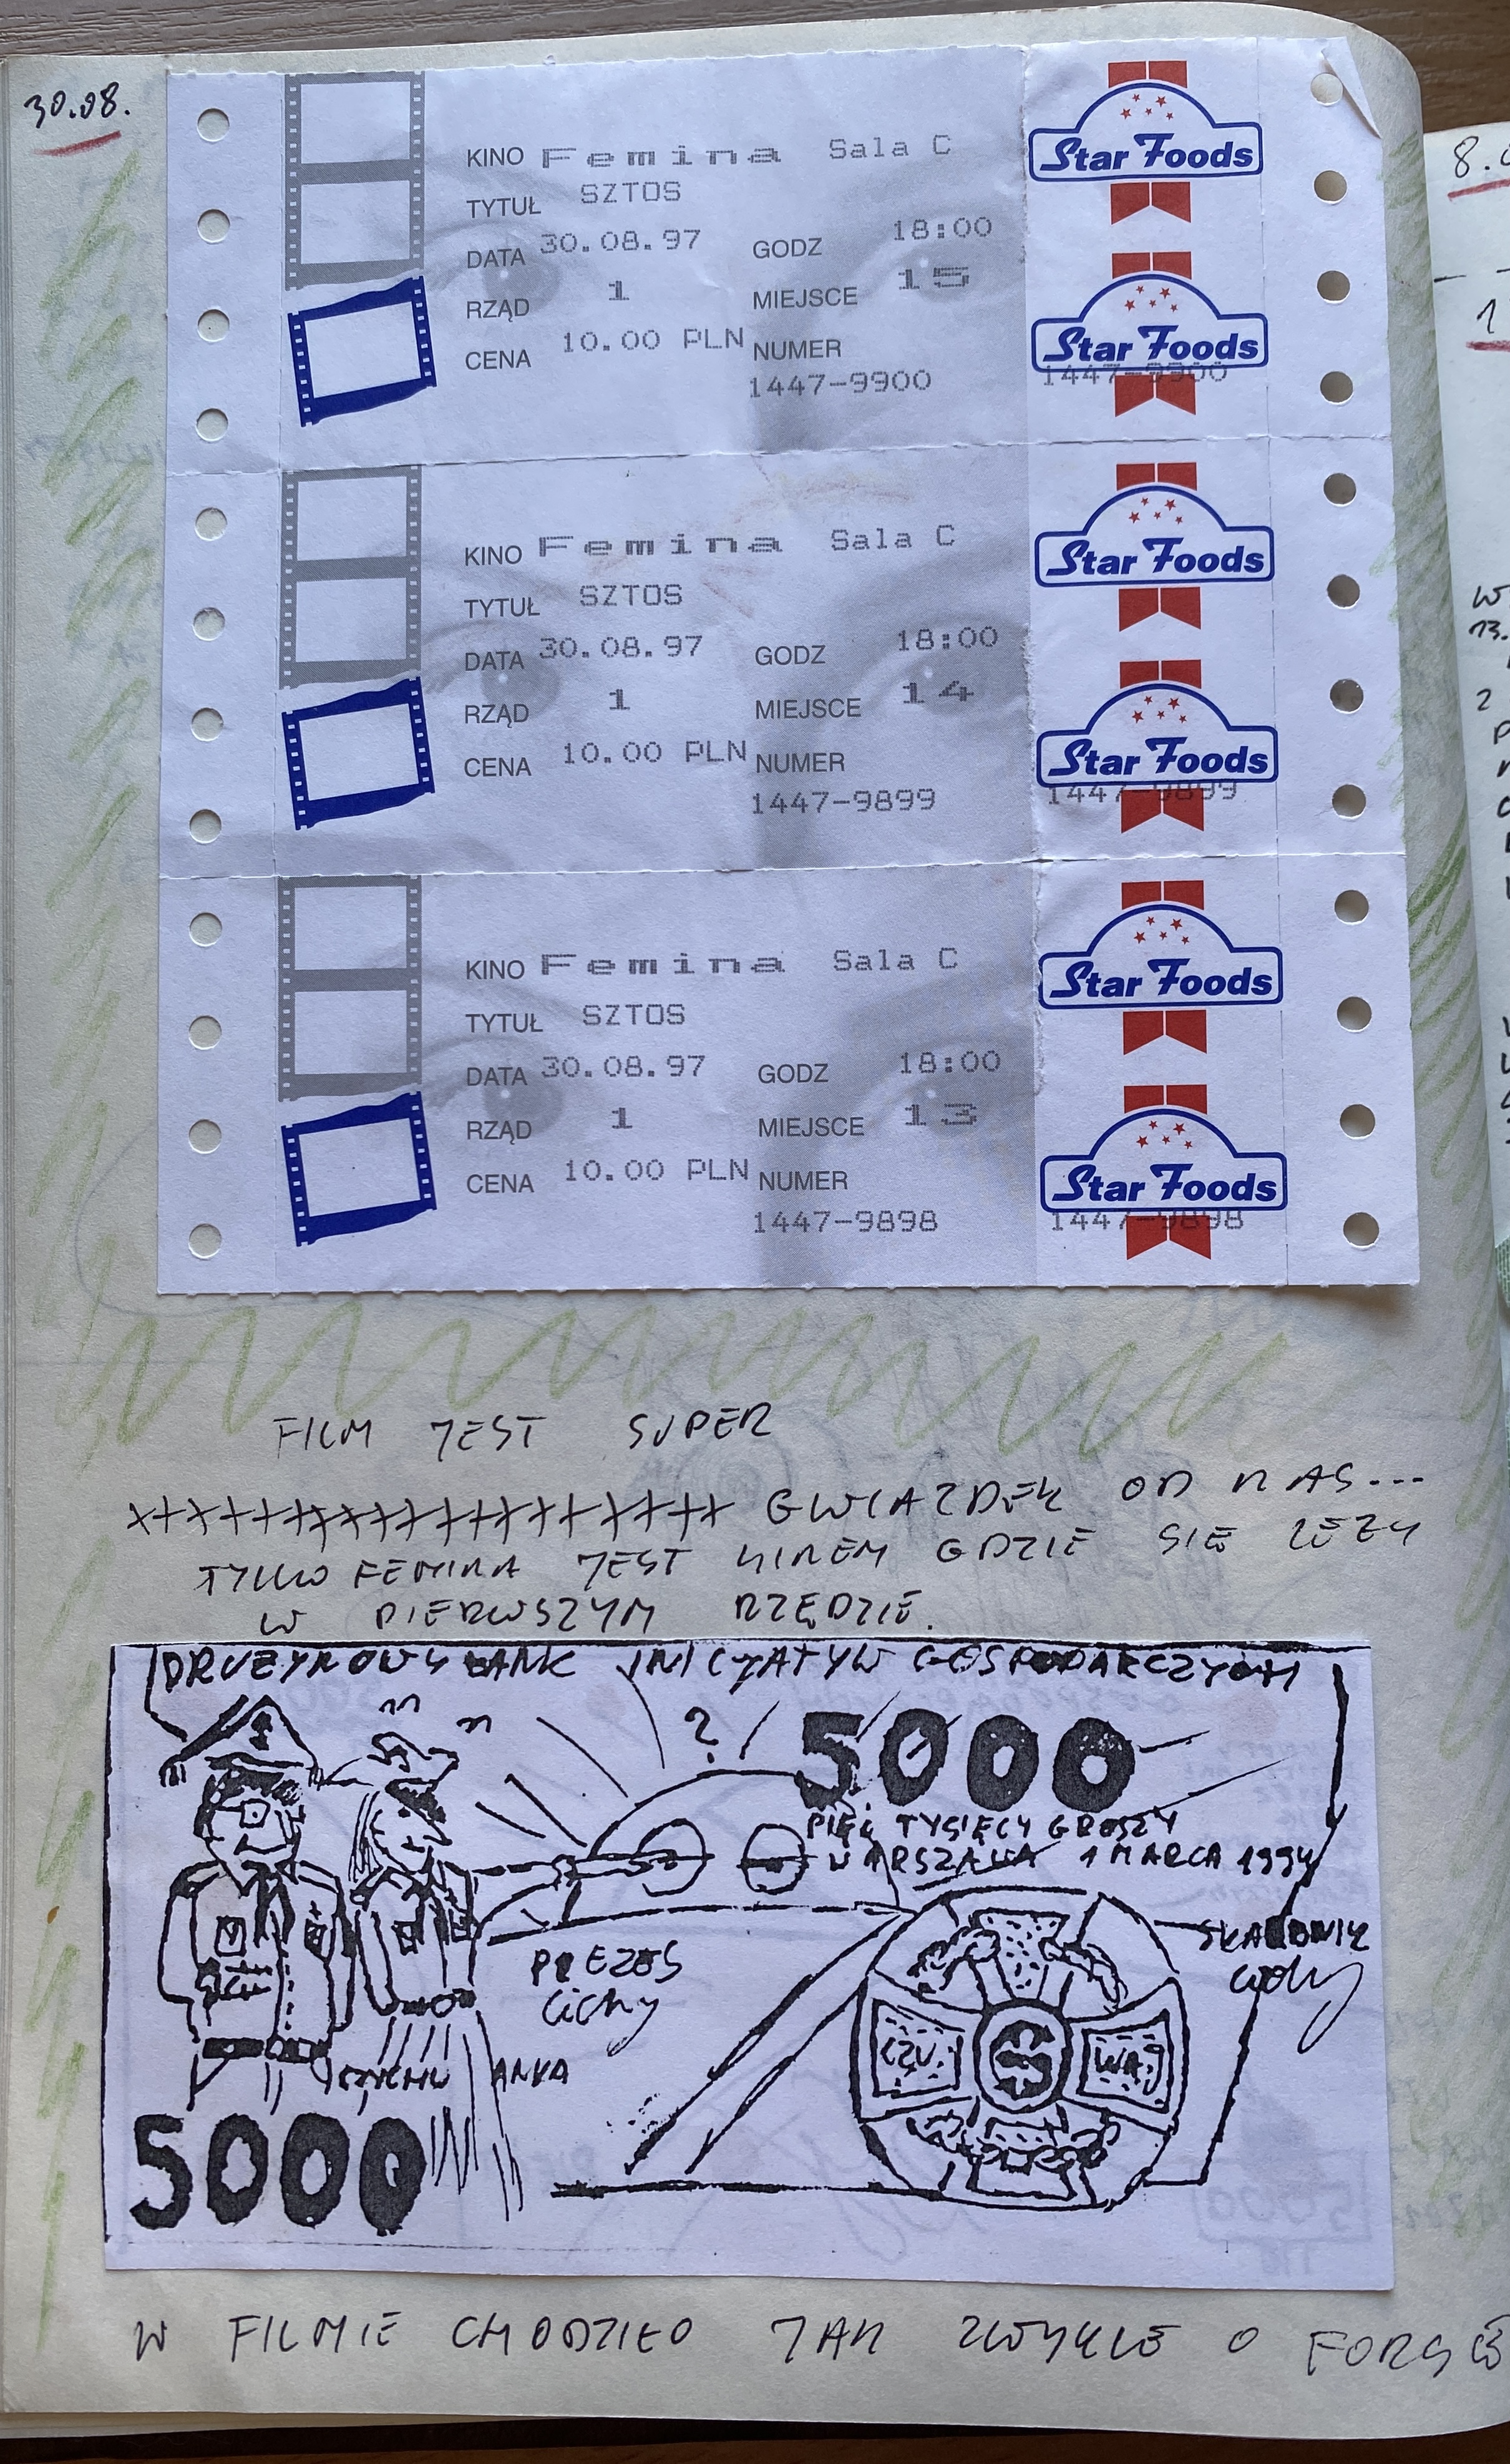 30.08.
KINO Femina Sala C
TYTUŁ SZTOS
DATA 30.08.97 GODZ 18:00
RZĄD 1 MIEJSCE 15
CENA 10.00 PLN NUMER
1447-9900
Star Foods
Star Foods
1447-9900
KINO Femina Sala C
TYTUŁ SZTOS
DATA 30.08.97 GODZ 18:00
RZĄD 1 MIEJSCE 14
CENA 10.00 PLN NUMER
1447-9899
Star Foods
Star Foods
1447-9899
KINO Femina Sala C
TYTUŁ SZTOS
DATA 30.08.97 GODZ 18:00
RZĄD 1 MIEJSCE 13
CENA 10.00 PLN NUMER
1447-9898
Star Foods
Star Foods
1447-9898
FILM JEST SUPER
GWIAZDEK OD NAS...
TYLKO FEMINA JEST KINEM GDZIE SIĘ LEŻY
W PIERWSZYM RZĘDZIE.
DRUŻYNOWY BANK INICJATYW GOSPODARCZYCH
?
5000
PIĘĆ TYSIĘCY GROSZY
WARSZAWA 1 MARCA 1994
PREZES
Cichy
SKARBNIK
CZUJ
WAJ
5000
W FILMIE CHODZIŁO JAK ZWYKLE O FORSĘ